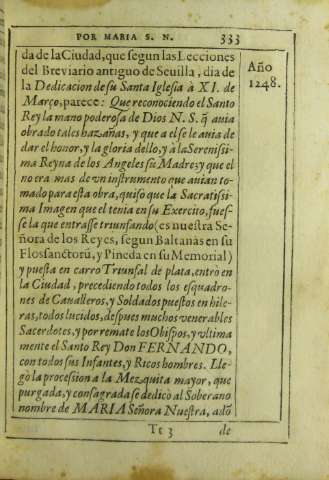 POR MARIA S. N. 333
da de la Ciudad, que segun las Lecciones
del Breviario antiguo de Sevilla, dia de
la Dedicacion de sù Santa Iglesia à XI. de
Março, parece: Que reconociendo el Santo
Rey la mano poderosa de Dios N. S. q̃ auia
obrado tales hazañas, y que a el se le avia de
dar el honor, y la gloria dello, y à la Serenissi-
ma Reyna de los Angeles sù Madre; y que el
no era mas de vn instrumento que auian to-
mado para esta obra, quisò que la Sacratissi-
ma Imagen que el tenia en su Exercito, fues-
se la que entrasse triunfando (es nuestra Se-
ñora de los Reyes, segun Baltanàs en su
Flossanctorũ, y Pineda en su Memorial)
y puesta en carro Triunfal de plata, entrò en
la Ciudad, precediendo todos los esquadro-
nes de Caualleros, y Soldados puestos en hile-
ras, todos lucidos, despues muchos venerables
Sacerdotes, y por remate los Obispos, y vltima
mente el Santo Rey Don FERNANDO,
con todos sus Infantes, y Ricos hombres. Lle-
gò la procession a la Mezquita mayor, que
purgada, y consagrada se dedicò al Soberano
nombre de MARIA Señora Nuestra, adõ
Tt 3 de
Año
1248.